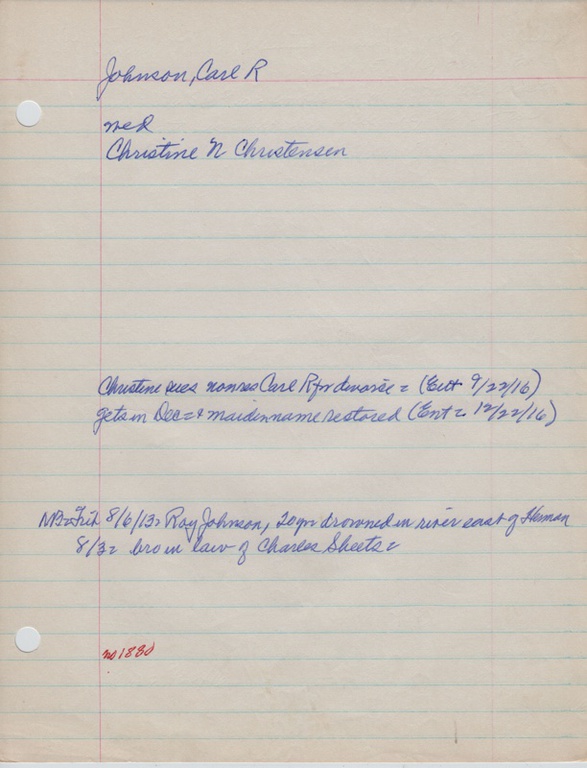 Johnson, Carl R
med
Christine N Christensen
Christine sues nonres Carl R for divorce = (Ent 9/22/16)
gets in Dec = & maiden name restored (Ent = 12/22/16)
NB = Trib 8/6/13 = Roy Johnson, 20 yr drowned in river east of Herman
8/3 = bro in law of Charles Sheets =
no 1880